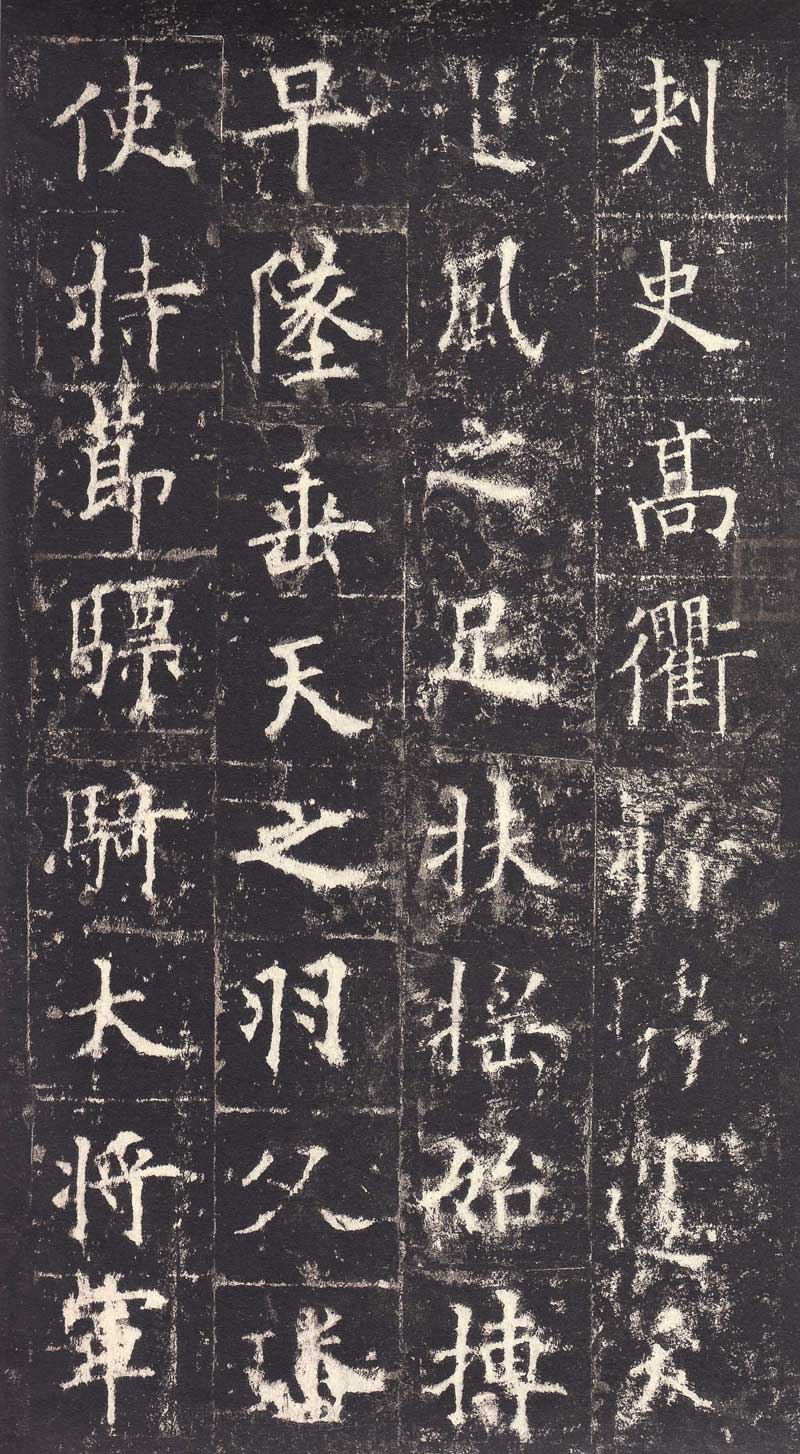 刺史高衢
追風之足扶搖始搏
早墬垂天之羽久
使持節驃騎大將軍